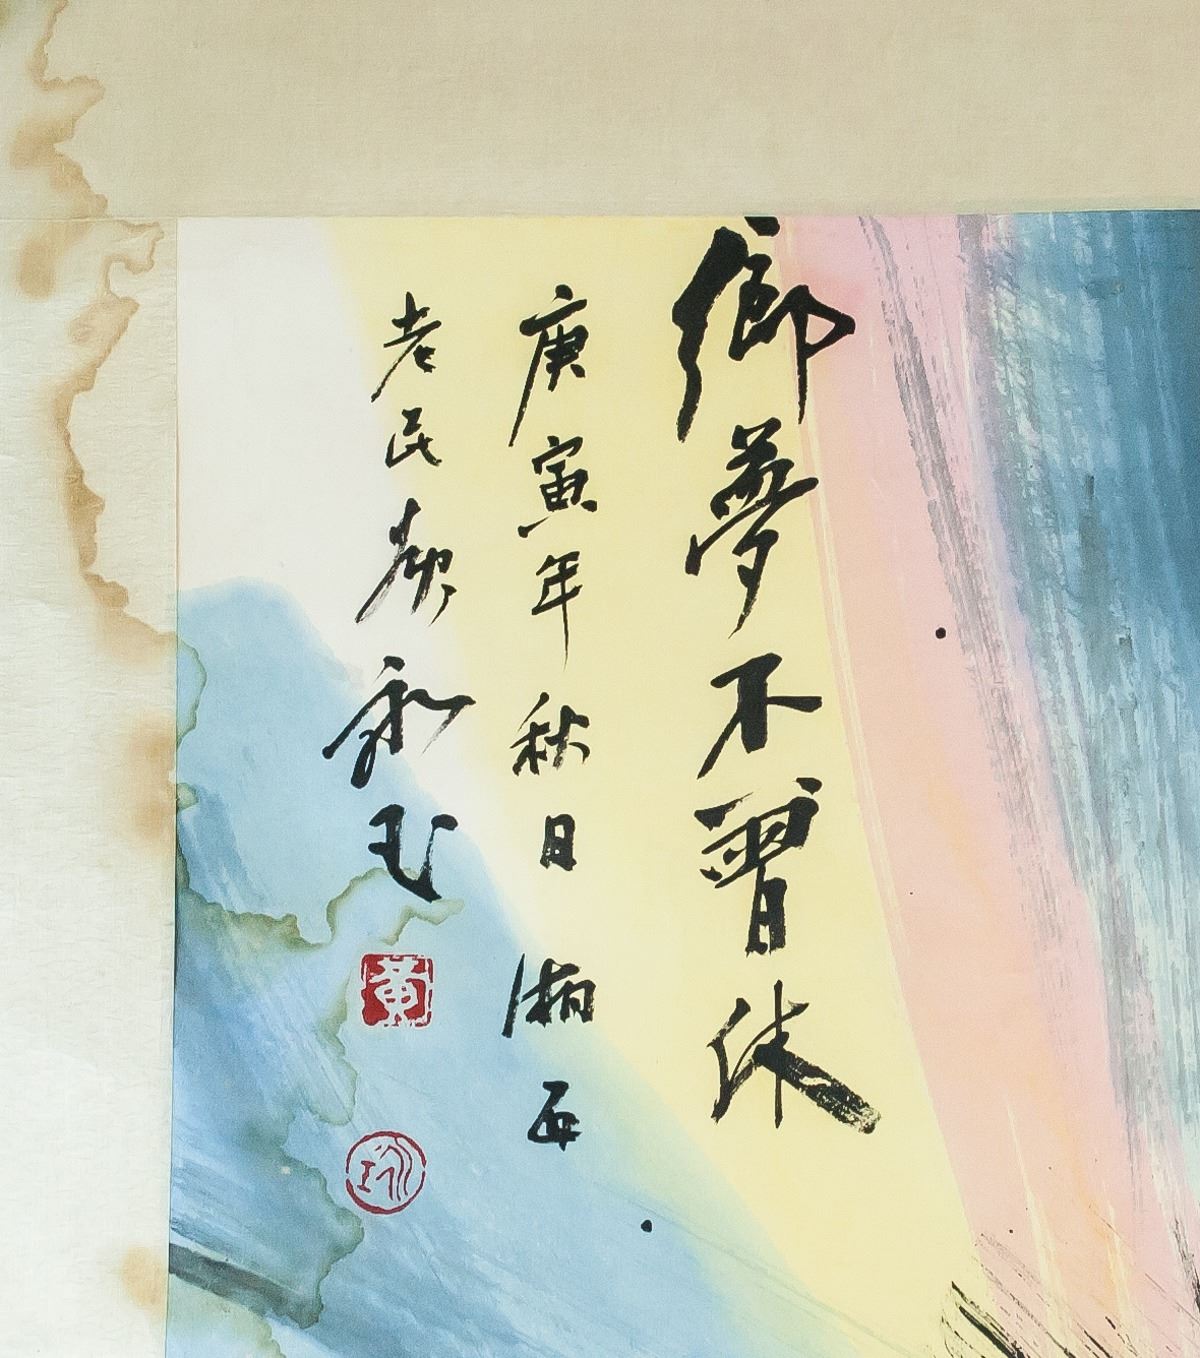 鄉夢不曾休
庚寅年秋日湘西
老民黃永玉
黃